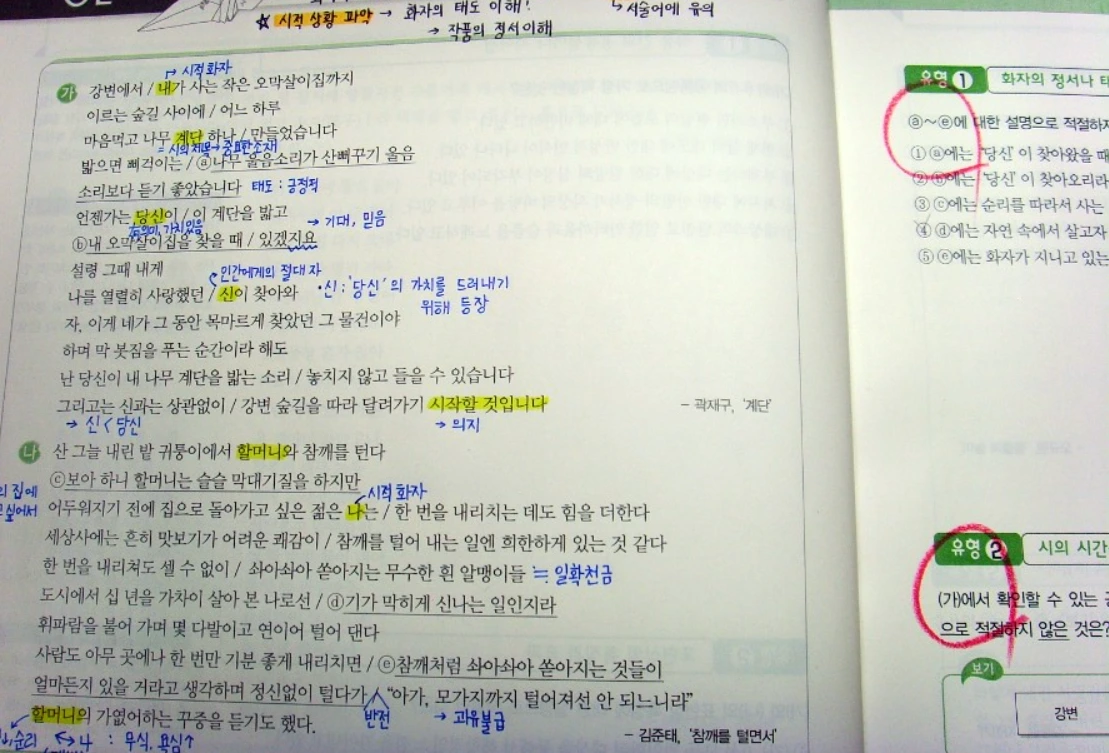 ☆ 시적 상황 파악 → 화자의 태도 이해!
↳ 서술어에 유의
→ 작품의 정서 이해
→ 시적화자
가 강변에서 / 내가 사는 작은 오막살이집까지
이르는 숲길 사이에 / 어느 하루
마음먹고 나무 계단 하나 / 만들었습니다
= 시의 제목 → 중요한 소재
밟으면 삐걱이는 / ⓐ나무 울음소리가 산뻐꾸기 울음
소리보다 듣기 좋았습니다 태도 : 긍정적
언젠가는 당신이 / 이 계단을 밟고
→ 기대, 믿음
ⓑ내 오막살이집을 찾을 때 / 있겠지요
설령 그때 내게
인간에게의 절대자
나를 열렬히 사랑했던 / 신이 찾아와
•신 : '당신'의 가치를 드러내기
위해 등장
자, 이게 네가 그 동안 목마르게 찾았던 그 물건이야
하며 막 봇짐을 푸는 순간이라 해도
난 당신이 내 나무 계단을 밟는 소리 / 놓치지 않고 들을 수 있습니다
그리고는 신과는 상관없이 / 강변 숲길을 따라 달려가기 시작할 것입니다
- 곽재구, '계단'
→ 신 < 당신
→ 의지
나 산 그늘 내린 밭 귀퉁이에서 할머니와 참깨를 턴다
ⓒ보아 하니 할머니는 슬슬 막대기질을 하지만
시적화자
어두워지기 전에 집으로 돌아가고 싶은 젊은 나는 / 한 번을 내리치는 데도 힘을 더한다
세상사에는 흔히 맛보기가 어려운 쾌감이 / 참깨를 털어 내는 일엔 희한하게 있는 것 같다
한 번을 내리쳐도 셀 수 없이 / 솨아솨아 쏟아지는 무수한 흰 알맹이들 ≒ 일확천금
도시에서 십 년을 가차이 살아 본 나로선 / ⓓ기가 막히게 신나는 일인지라
휘파람을 불어 가며 몇 다발이고 연이어 털어 댄다
사람도 아무 곳에나 한 번만 기분 좋게 내리치면 / ⓔ참깨처럼 솨아솨아 쏟아지는 것들이
얼마든지 있을 거라고 생각하며 정신없이 털다가 "아가, 모가지까지 털어져선 안 되느니라"
반전
→ 과유불급
할머니의 가엾어하는 꾸중을 듣기도 했다.
순리 ↔ 나 : 무식, 욕심↑
- 김준태, '참깨를 털면서'
유형 1 화자의 정서나
ⓐ~ⓔ에 대한 설명으로 적절하지
① ⓐ에는 '당신' 이 찾아왔을 때
② ⓑ에는 '당신' 이 찾아오리라
③ ⓒ에는 순리를 따라서 사는
④ ⓓ에는 자연 속에서 살고자
⑤ ⓔ에는 화자가 지니고 있는
유형 2 시의 시간
(가)에서 확인할 수 있는
으로 적절하지 않은 것은?
보기
강변